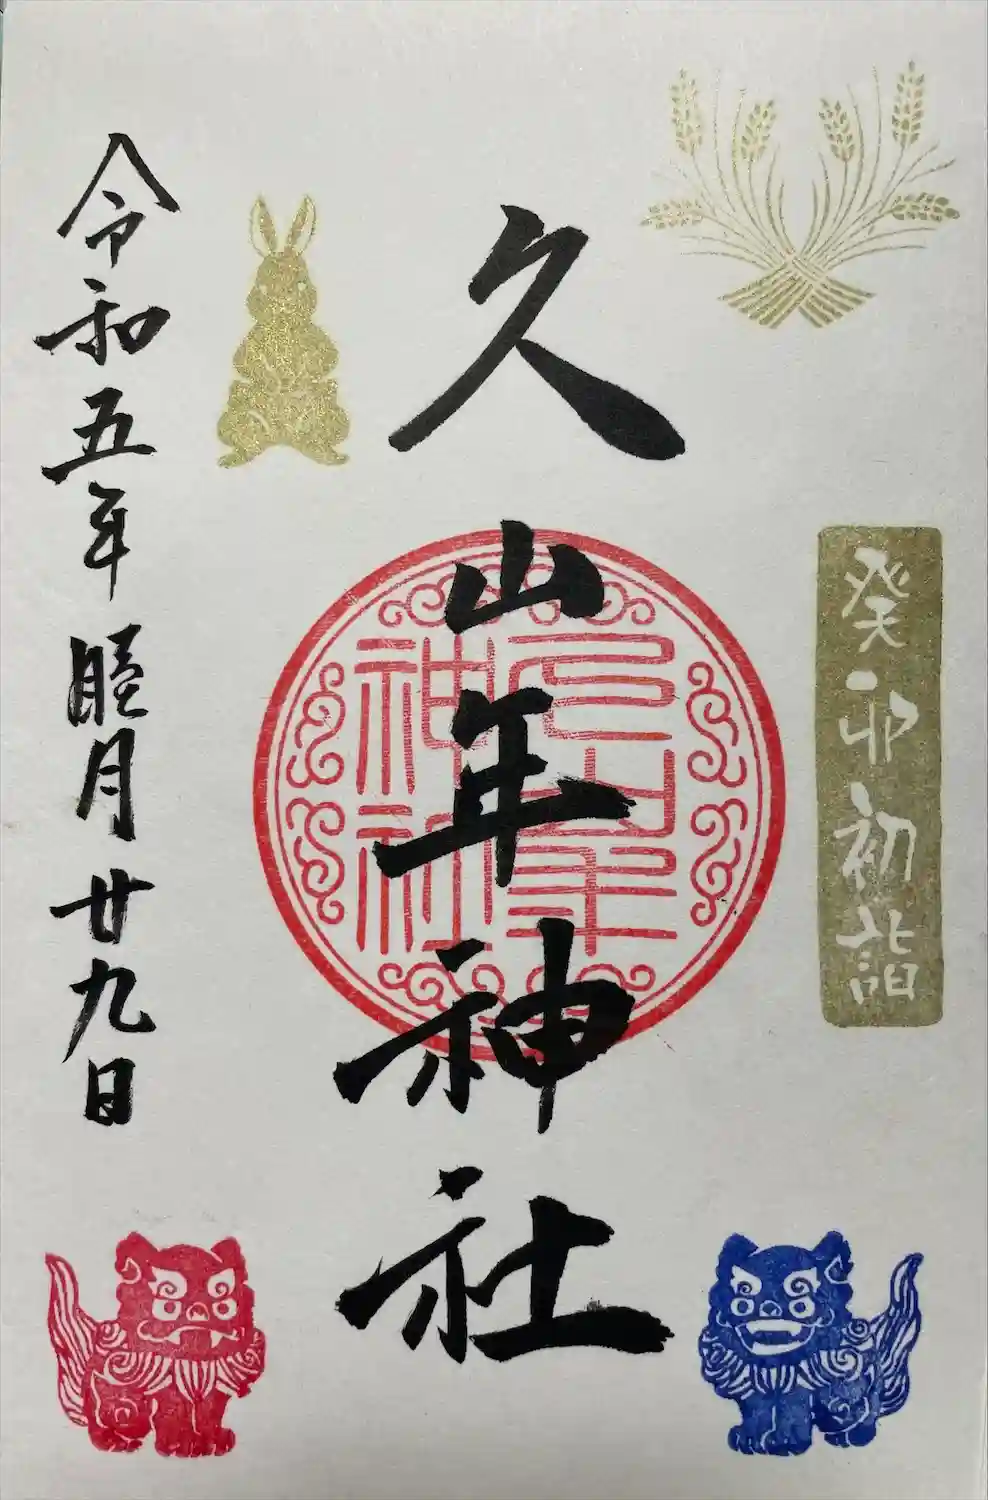 癸卯初詣
久山年神社
久山年
神社
令和五年睦月廿九日